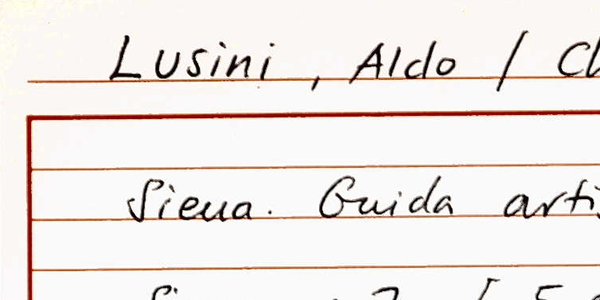 Lusini, Aldo / Cl
Siena. Guida arti